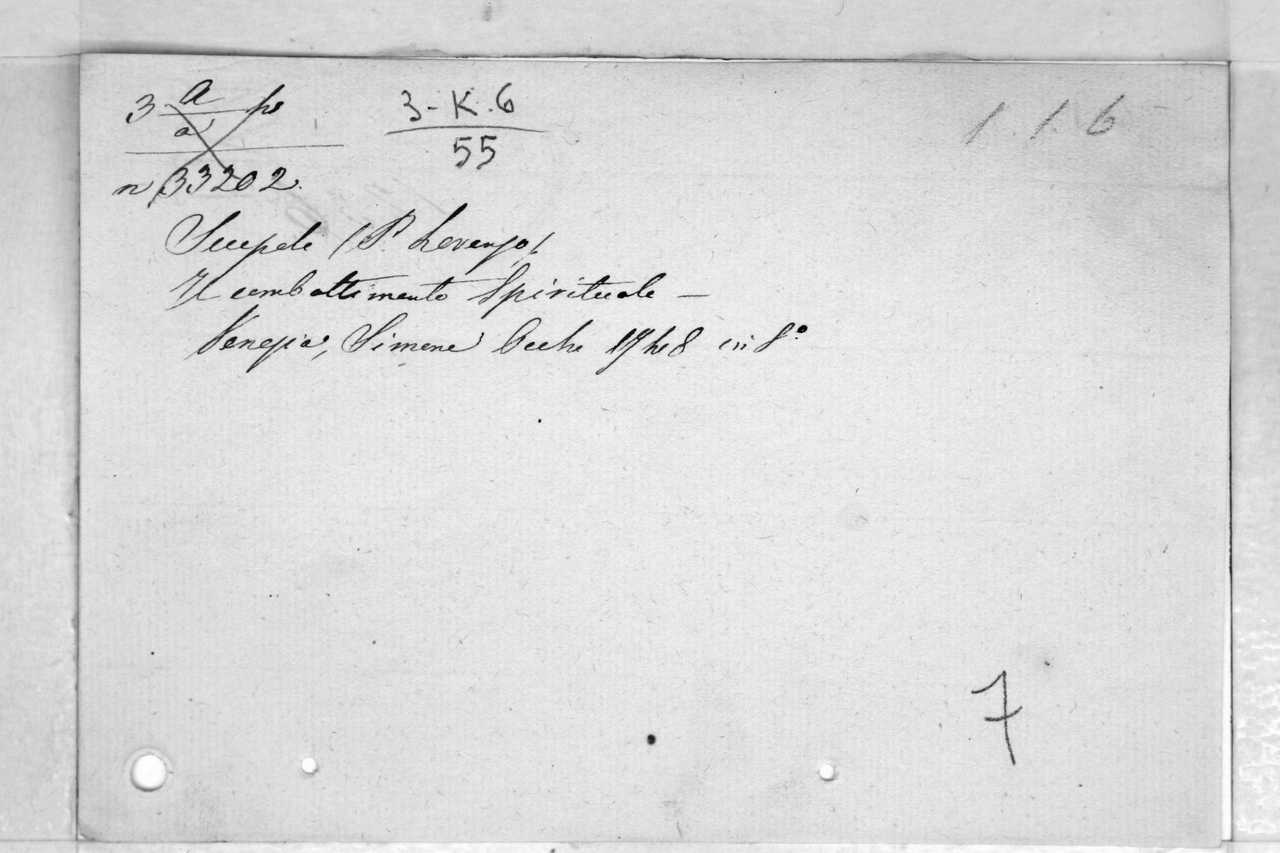 3 a
a
n 33202.
3-K.6
55
1.1.6
Scupoli (P. Lorenzo)
Il combattimento Spirituale —
Venezia, Simone Occhi 1748 in 8°
7